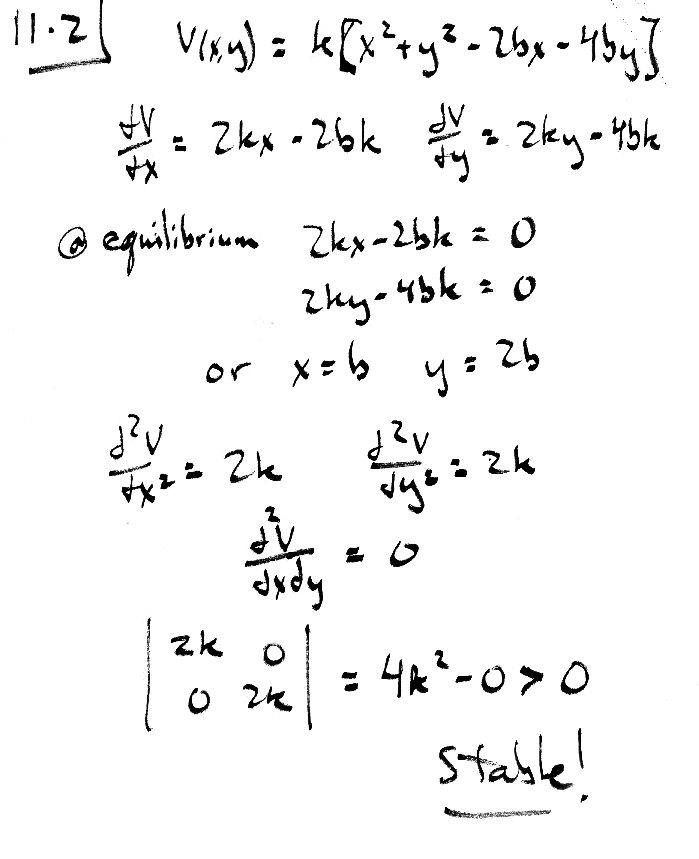 11.2 V(x,y) = k[x²+y²-2bx-4by]
dV/dx = 2kx - 2bk dV/dy = 2ky - 4bk
@ equilibrium 2kx-2bk = 0
2ky-4bk = 0
or x=b y = 2b
d²V/dx² = 2k d²V/dy² = 2k
d²V/dxdy = 0
| 2k 0
0 2k | = 4k²-0 > 0
Stable!